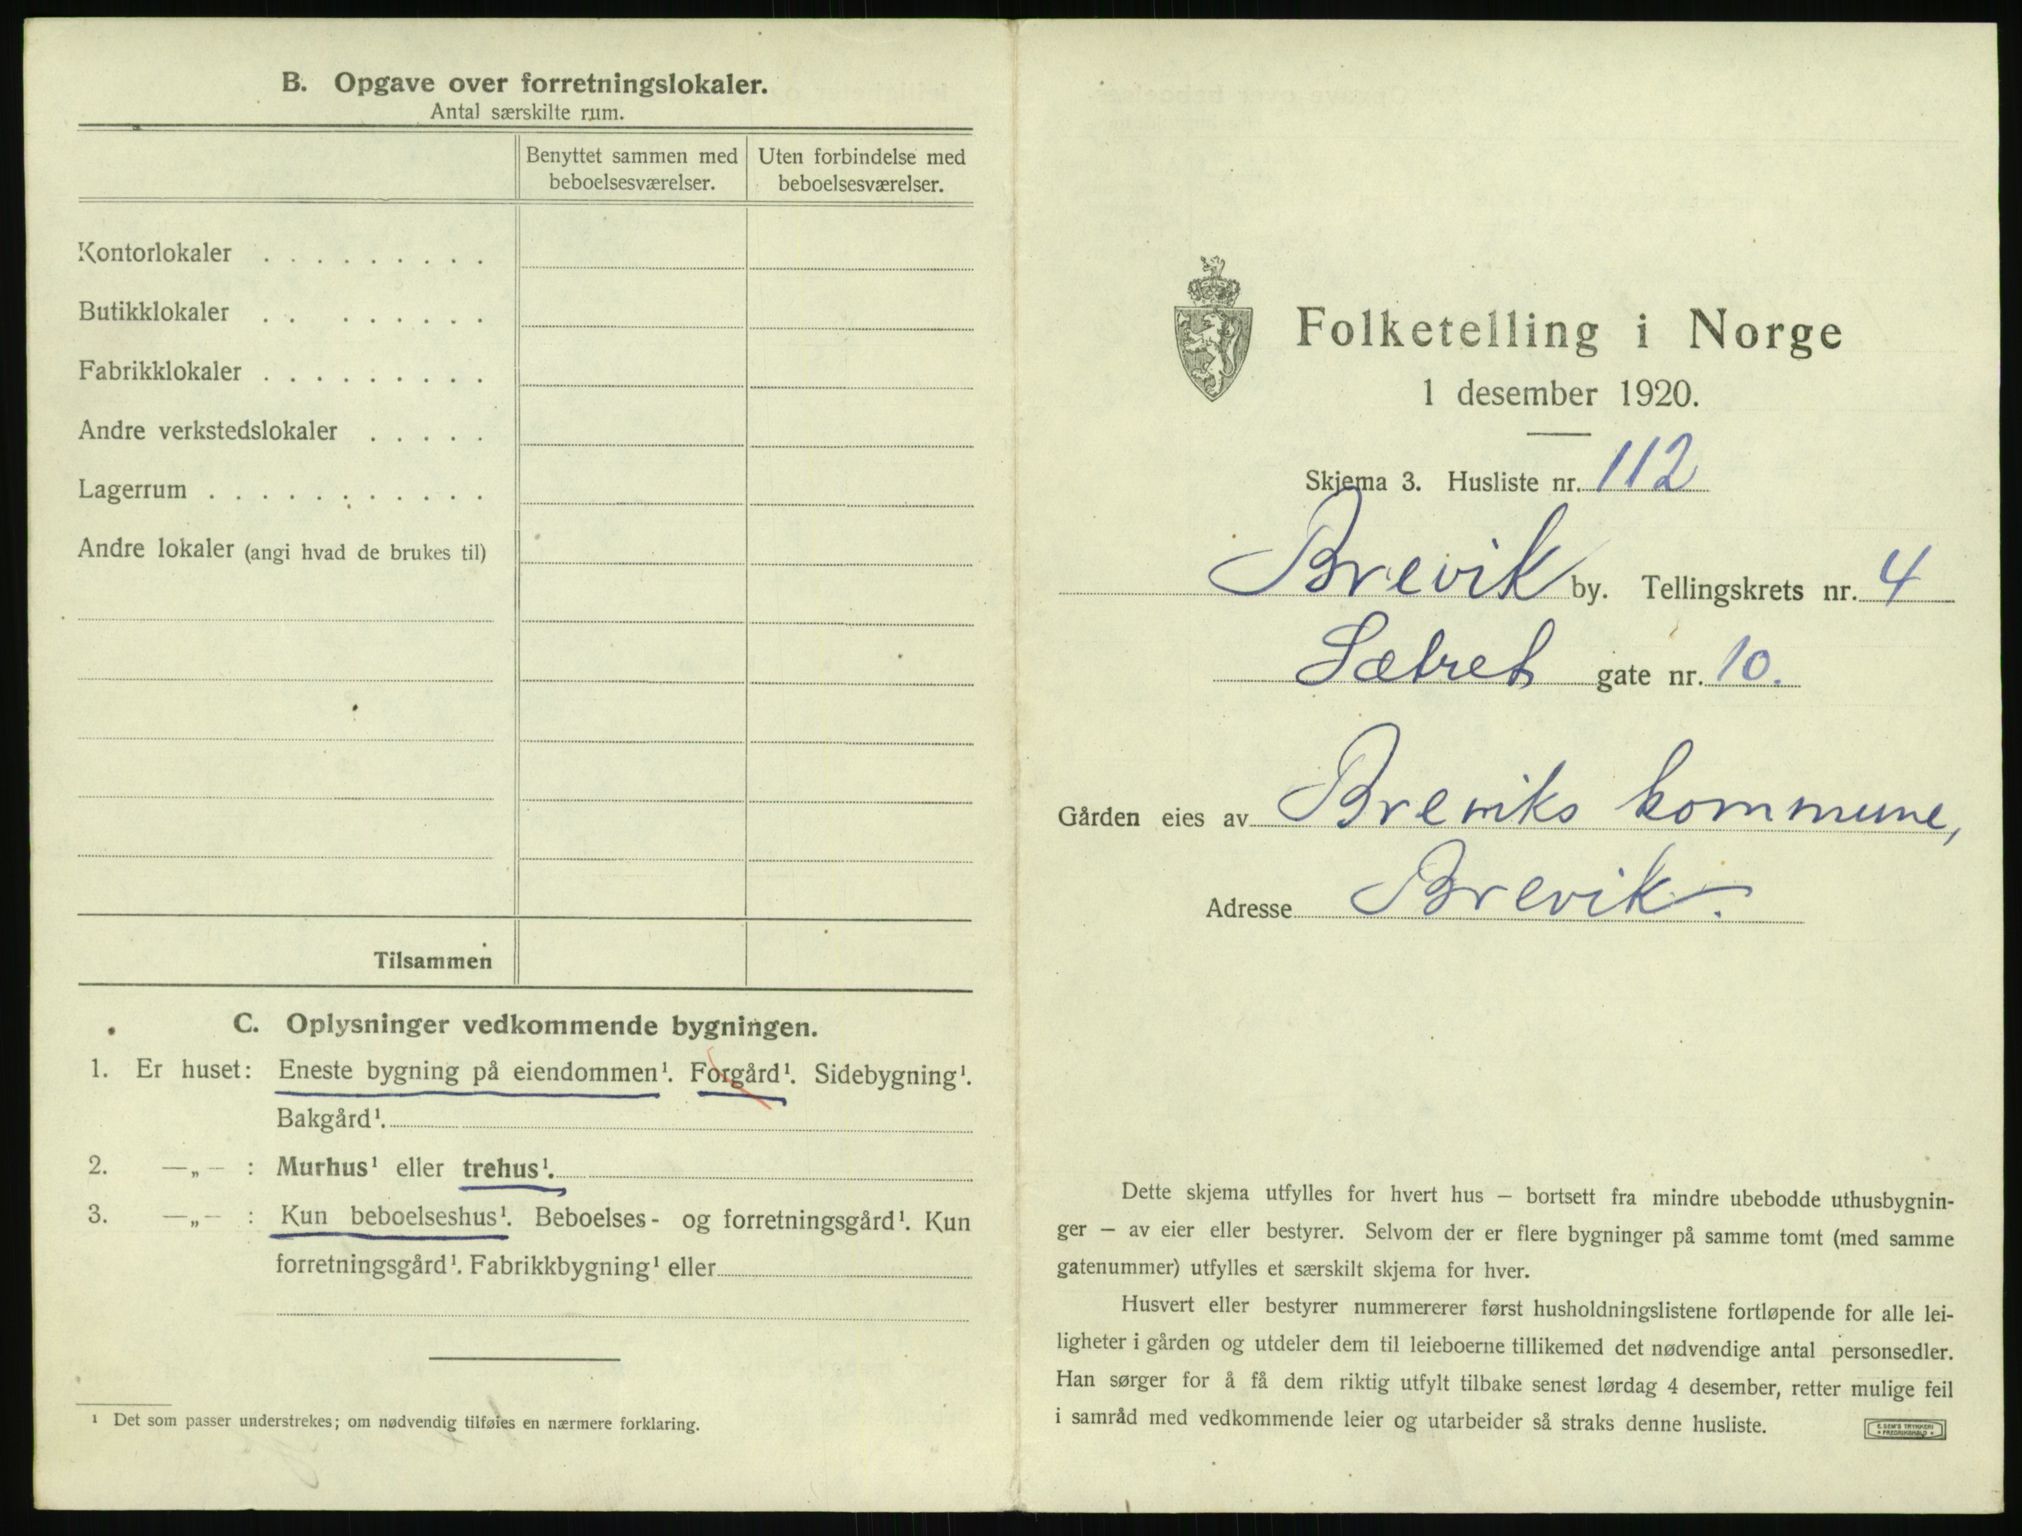 B. Opgave over forretningslokaler.
Antal særskilte rum.
Benyttet sammen med beboelsesværelser.
Uten forbindelse med beboelsesværelser.
Kontorlokaler . . . . . . . . .
Butikklokaler . . . . . . . .
Fabrikklokaler . . . . . . . . .
Andre verkstedslokaler . . . . .
Lagerrum . . . . . . . . . . .
Andre lokaler (angi hvad de brukes til)
Tilsammen
C. Oplysninger vedkommende bygningen.
1. Er huset: Eneste bygning på eiendommen¹. Forgård¹. Sidebygning¹.
Bakgård¹.
2. —„— : Murhus¹ eller trehus¹.
3. —„— : Kun beboelseshus¹. Beboelses- og forretningsgård¹. Kun
forretningsgård¹. Fabrikkbygning¹ eller
¹ Det som passer understrekes; om nødvendig tilføies en nærmere forklaring.
Folketelling i Norge
1 desember 1920.
Skjema 3. Husliste nr. 112
Brevik by. Tellingskrets nr. 4
Sætret gate nr. 10.
Gården eies av Breviks kommune,
Adresse Brevik.
Dette skjema utfylles for hvert hus — bortsett fra mindre ubebodde uthusbygnin-
ger — av eier eller bestyrer. Selvom der er flere bygninger på samme tomt (med samme
gatenummer) utfylles et særskilt skjema for hver.
Husvert eller bestyrer nummererer først husholdningslistene fortløpende for alle lei-
ligheter i gården og utdeler dem til leieboerne tillikemed det nødvendige antal personsedler.
Han sørger for å få dem riktig utfylt tilbake senest lørdag 4 desember, retter mulige feil
i samråd med vedkommende leier og utarbeider så straks denne husliste.
E. SEM'S TRYKKERI
FREDRIKSHALD